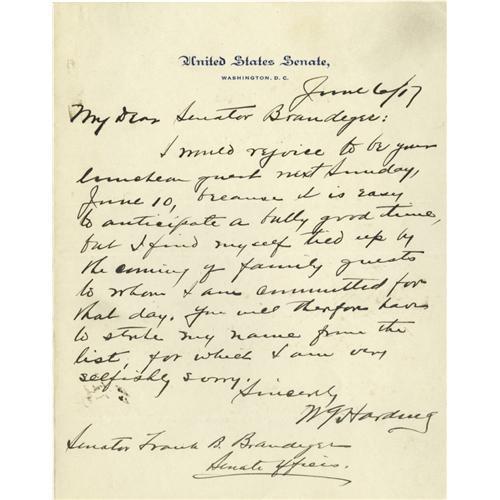 United States Senate,
WASHINGTON, D. C.
June 6/17
My Dear Senator Brandegee:
I would rejoice to be your
luncheon guest next Sunday,
June 10, because it is easy
to anticipate a bully good time,
but I find myself tied up by
the coming of family guests
to whom I am committed for
that day. You will therefore have
to strike my name from the
list, for which I am very
selfishly sorry.
Sincerely
W G Harding
Senator Frank B. Brandegee
Senate Offices.